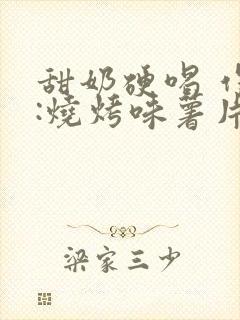 甜奶硬唱
:燒烤味薯片
梁家三少